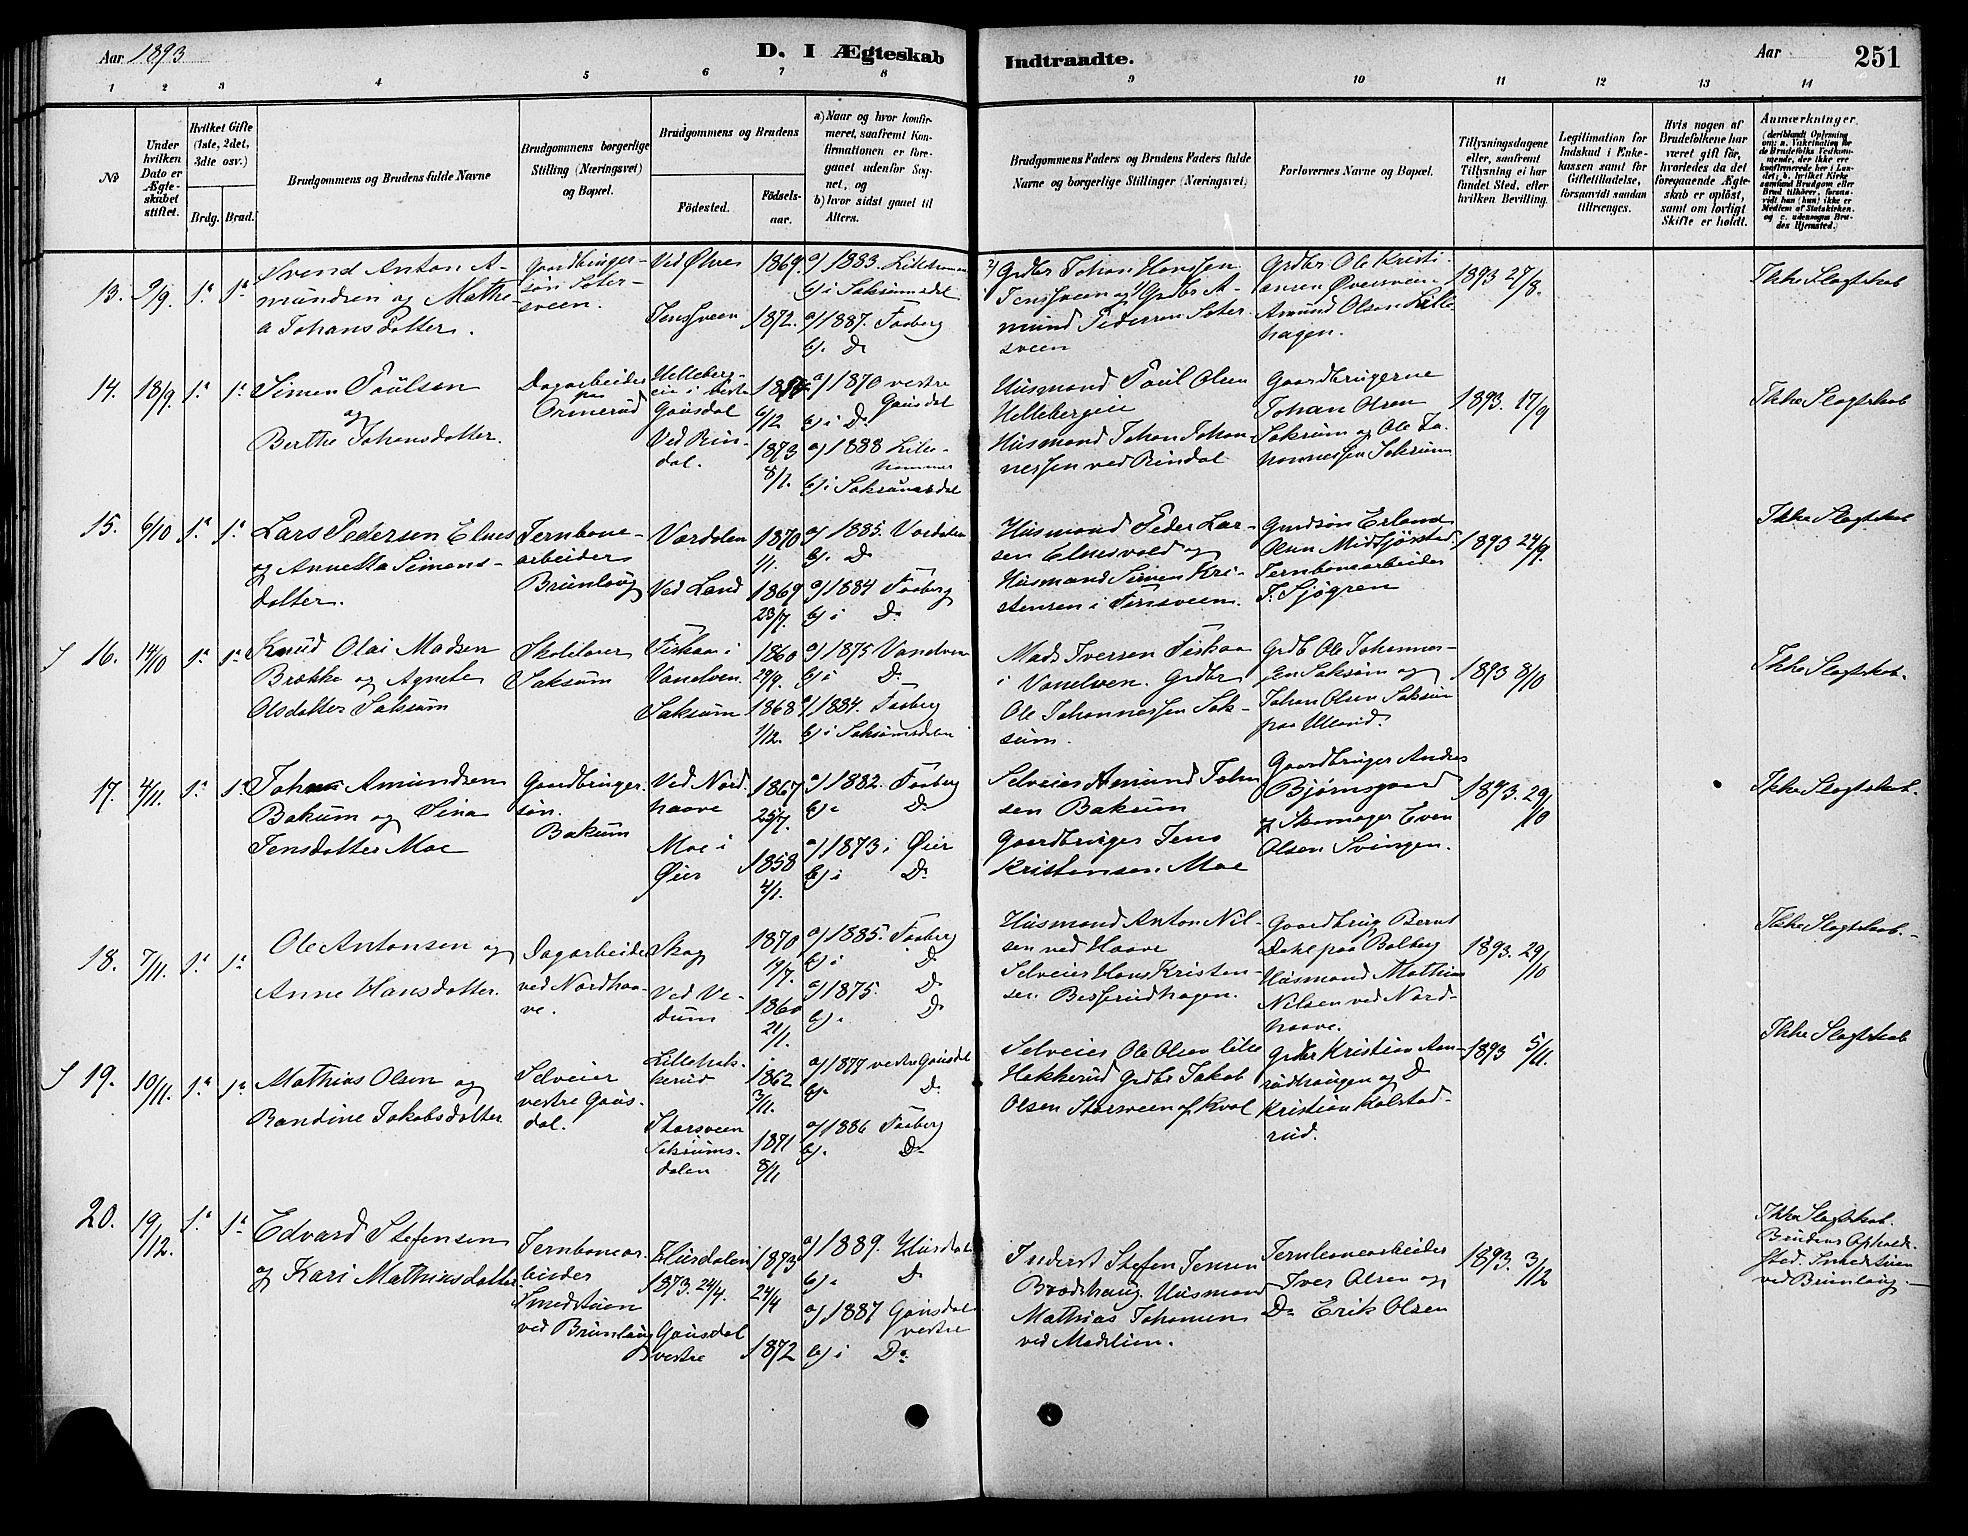 Aar 1893
D. I Ægteskab Indtraadte.
Aar
251
1 2 3 4 5 6 7 8 9 10 11 12 13 14
No
Under hvilken Dato er Ægteskabet stiftet.
Hvilket Gifte (1ste, 2det, 3die osv.)
Brdg. Brud.
Brudgommens og Brudens fulde Navne
Brudgommens borgerlige Stilling (Næringsvei) og Bopæl.
Brudgommens og Brudens
Fødested.
Fødselsaar.
a) Naar og hvor konfirmeret, saafremt Konfirmationen er foregaaet udenfor Sognet, og
b) hvor sidst gaaet til Alters.
Brudgommens Faders og Brudens Faders fulde Navne og borgerlige Stillinger (Næringsvei)
Forlovernes Navne og Bopæl.
Tillysningsdagene eller, saafremt Tillysning ei har fundet Sted, efter hvilken Bevilling.
Legitimation for Indskud i Enkekassen samt for Giftetilladelse, forsaavidt saadan tiltrænges.
Hvis nogen af Brudefolkene har været gift før, hvorledes da det foregaaende Ægteskab er opløst, samt om lovligt Skifte er holdt.
Anmærkninger.
13. 9/9. 1ª 1ª
Svend Anton A-
mundsen og Mathe-
a Johansdatter.
Gaardbruger-
søn Seter-
sveen.
Ved Ølves 1869.
Jenssveen 1872.
a) 1883. Lillehammer
b) i Saksumsdal
a) 1887. Faaberg
b). Do
2) Grdbr Johan Hansen
Jenssveen og 1) Grdbr A-
mund Pedersen Seter-
sveen
Grdbr Ole Kristi-
ansen Øversveen
Amund Olsen Lille-
hagen.
1893 27/8.
Ikke Slagtskab
14. 18/9. 1ª 1ª
Simen Paulsen
og
Berthe Johansdatter.
Dagarbeider
paa
Ormerud
Helleberg-
eie i vestre
Gausdal
6/12
Ved Rin-
dal.
1873
8/1.
a) 1870 vestre
Gausdal
b) i Do
a) 1888 Lille-
hammer
b) i Saksumsdal
Husmand Paul Olsen
Hellebergeie
Husmand Johan Johan-
nessen ved Rindal
Gaardbrugerne
Johan Olsen
Saksum og Ole Jo-
hannessen Saksum
1893. 17/9
Ikke Slagtskab
15. 6/10 1ª 1ª
Lars Pedersen Elnes
og Annetta Simens-
datter.
Jernbane-
arbeider
Brunlaug
Værdalen 1870
1/1.
Ved Land 1869
23/7.
a) 1885. Værdalen
b). Do
a) 1884 Faaberg
b) i Do
Husmand Peder Lar-
sen Elnesvald og
Husmand Simen Kri-
stensen i Jensveen.
Gaardsøn Erland
Olsen Midtsjørstad.
Jernbanearbeider
J. Sjøgren
1893 24/9.
Ikke Slagtskab
S 16. 14/10 1ª 1ª
Knud Olai Madsen
Brække og Agnete
Olsdatter Saksum
Skolelærer
Saksum
Fiskaa i
Vanelven.
1860
29/9.
Saksum 1868
1/12.
a) 1875 Vanelven
b) i Do
a) 1884. Faaberg
b) i Saksumsdalen
Mads Iversen Fiskaa
i Vanelven. Grdbr
Ole Johannessen Sak-
sum.
Grdb Ole Johannes-
sen Saksum og
Johan Olsen Saksum
paa Uland.
1893 8/10
Ikke Slagtskab.
17. 4/11. 1ª 1ª
Johan Amundsen
Bakum og Sina
Jensdatter Moe
Gaardbruger-
søn.
Bakum
Ved Nord-
haave
1867
25/7.
Moe i
Øier
1858
4/1.
a) 1882. Faaberg
b). Do
a) 1873 i Øier
b) i Do
Selveier Amund Johan-
sen Bakum
Gaardbruger Jens
Kristensen Moe
Gaardbruger Andres
Bjørnsgaard
og Skomager Even
Olsen Svingen.
1893. 29/10
Ikke Slagtskab.
18. 7/11. 1ª 1ª
Ole Antonsen og
Anne Hansdatter.
Dagarbeider
ved Nordhaa-
ve.
Skog 1870
19/7.
Ved Ve-
dum
1860
21/1.
a) 1885. Faaberg
b) i Do
a) 1875. Do
b). Do
Husmand Anton Nil-
sen ved Haave
Selveier Hans Kristen-
sen Besserudhagen.
Gaardbrug Bernt
Dahl paa Balberg
Husmand Mathias
Nilsen ved Nord-
haave.
1893. 29/10
Ikke Slagtskab.
S 19. 10/11. 1ª 1ª
Mathias Olsen og
Randine Jakobsdatter
Selveier
vestre Gaus-
dal.
Lillehak-
kerud
1862
3/11.
Storsveen
Saksums-
dalen
1871
8/11
a) 1877 vestre Gausdal
b). Do
a) 1886 Faaberg
b). Do
Selveier Ole Olsen Lille
Hakkerud Grdbr Jakob
Olsen Storsveen af Kval
Grdbr Kristian Aan-
rudhaugen og Do
Kristian Kolstad-
rud.
1893 5/11.
Ikke Slagtskab
20. 19/12. 1ª 1ª
Edvard Stefensen
og Kari Mathiasdatter
Jernbanear-
beider
Smedstuen
ved Brunlaug
Elusdalen
1873. 24/4.
1873
24/4
Gausdal
vestre
1872
a) 1889.
b). Do
a) 1887 Gausdal
vestre
b) i Do
Inderst Stefen Jensen
Brædshaug. Husmand
Mathias Johansen
ved Madslien.
Jernbanearbeider
Iver Olsen og
Do Erik Olsen
1893. 3/12
Ikke Slagtskab.
Brudens Opholds-
sted. Smedstuen
ved Brunlaug.